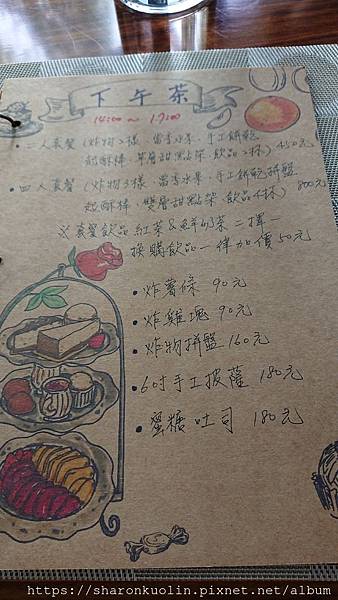 下午茶
14:00~17:00
·二人套餐(炸物2樣、當季水果、手工餅乾
起酥棒、單層甜點架、飲品2杯) 450元
·四人套餐(炸物3樣、當季水果、手工餅乾拼盤
起酥棒、雙層甜點架、飲品4杯) 800元
※套餐飲品 紅茶&鮮奶茶 二擇一
換購飲品一律加價50元
·炸薯條 90元
·炸雞塊 90元
·炸物拼盤 160元
·6吋手工披薩 180元
·蜜糖吐司 180元
https://sharonkuolin.pixnet.net/album